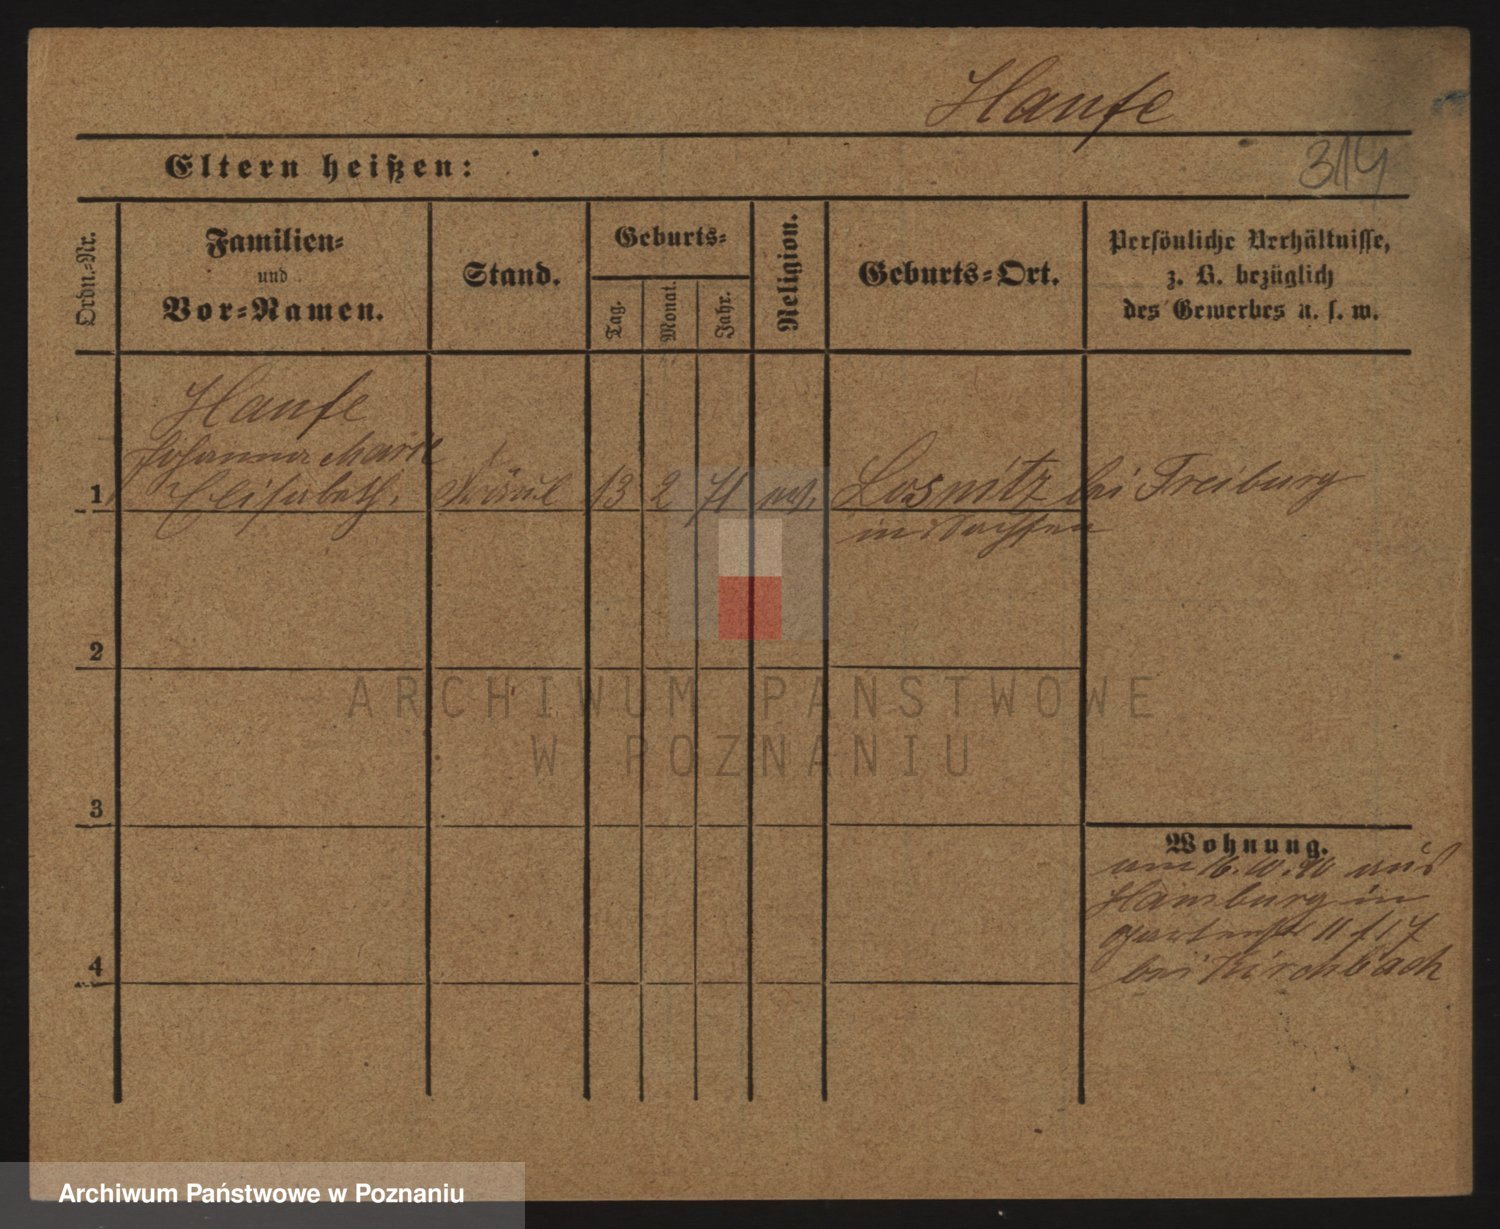 Haufe
Eltern heißen:
314
Ordn.-Nr.
Familien-
und
Vor-Namen.
Stand.
Geburts-
Tag.
Monat.
Jahr.
Religion.
Geburts-Ort.
Persönliche Verhältnisse,
z. B. bezüglich
des Gewerbes u. s. w.
Haufe
Johanna Marie
1 Elisabeth. 13 2 71 ev. Losnitz bei Freiburg
in Sachsen
2
3
4
Wohnung.
am 16.10.90 aus
Hamburg in
Gartenstr 11
bei Kirchbach
ARCHIWUM PAŃSTWOWE
W POZNANIU
Archiwum Państwowe w Poznaniu